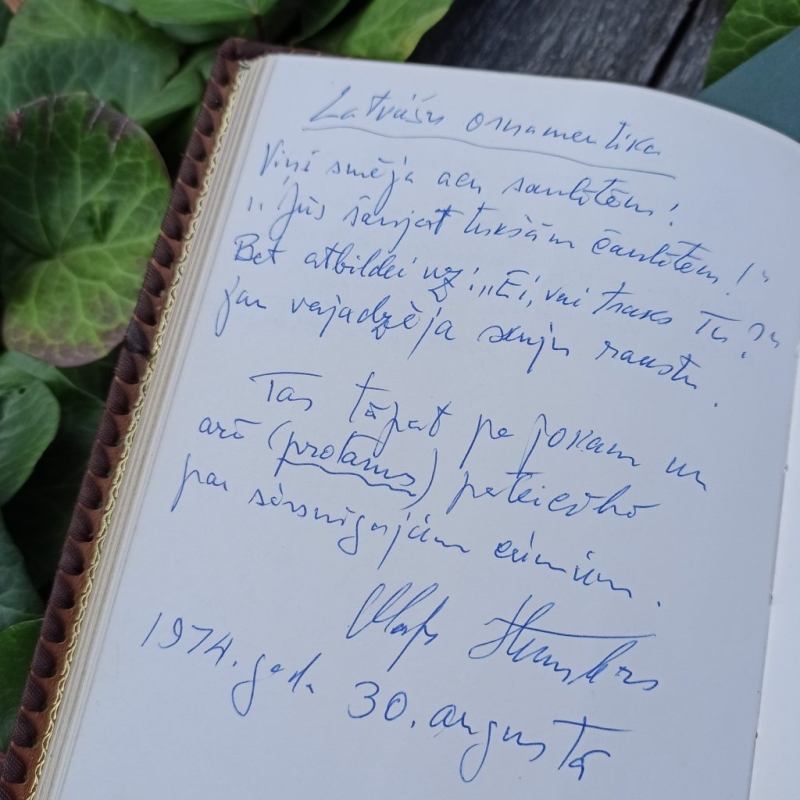 Latviešu ornamentika
Viņi smēja aen saulītēm!
„Jūs šaujat tukšām čaulītēm!“
Bet atbildei uz: „Ei, vai traks Tu?“
jau vajadzēja rakstu.
Tas tāpat pa jokam un
arī (protams) pateicībā
par sirsnīgajām ciemiņ.
Olafs Stumbrs
1974. gada
30. augustā